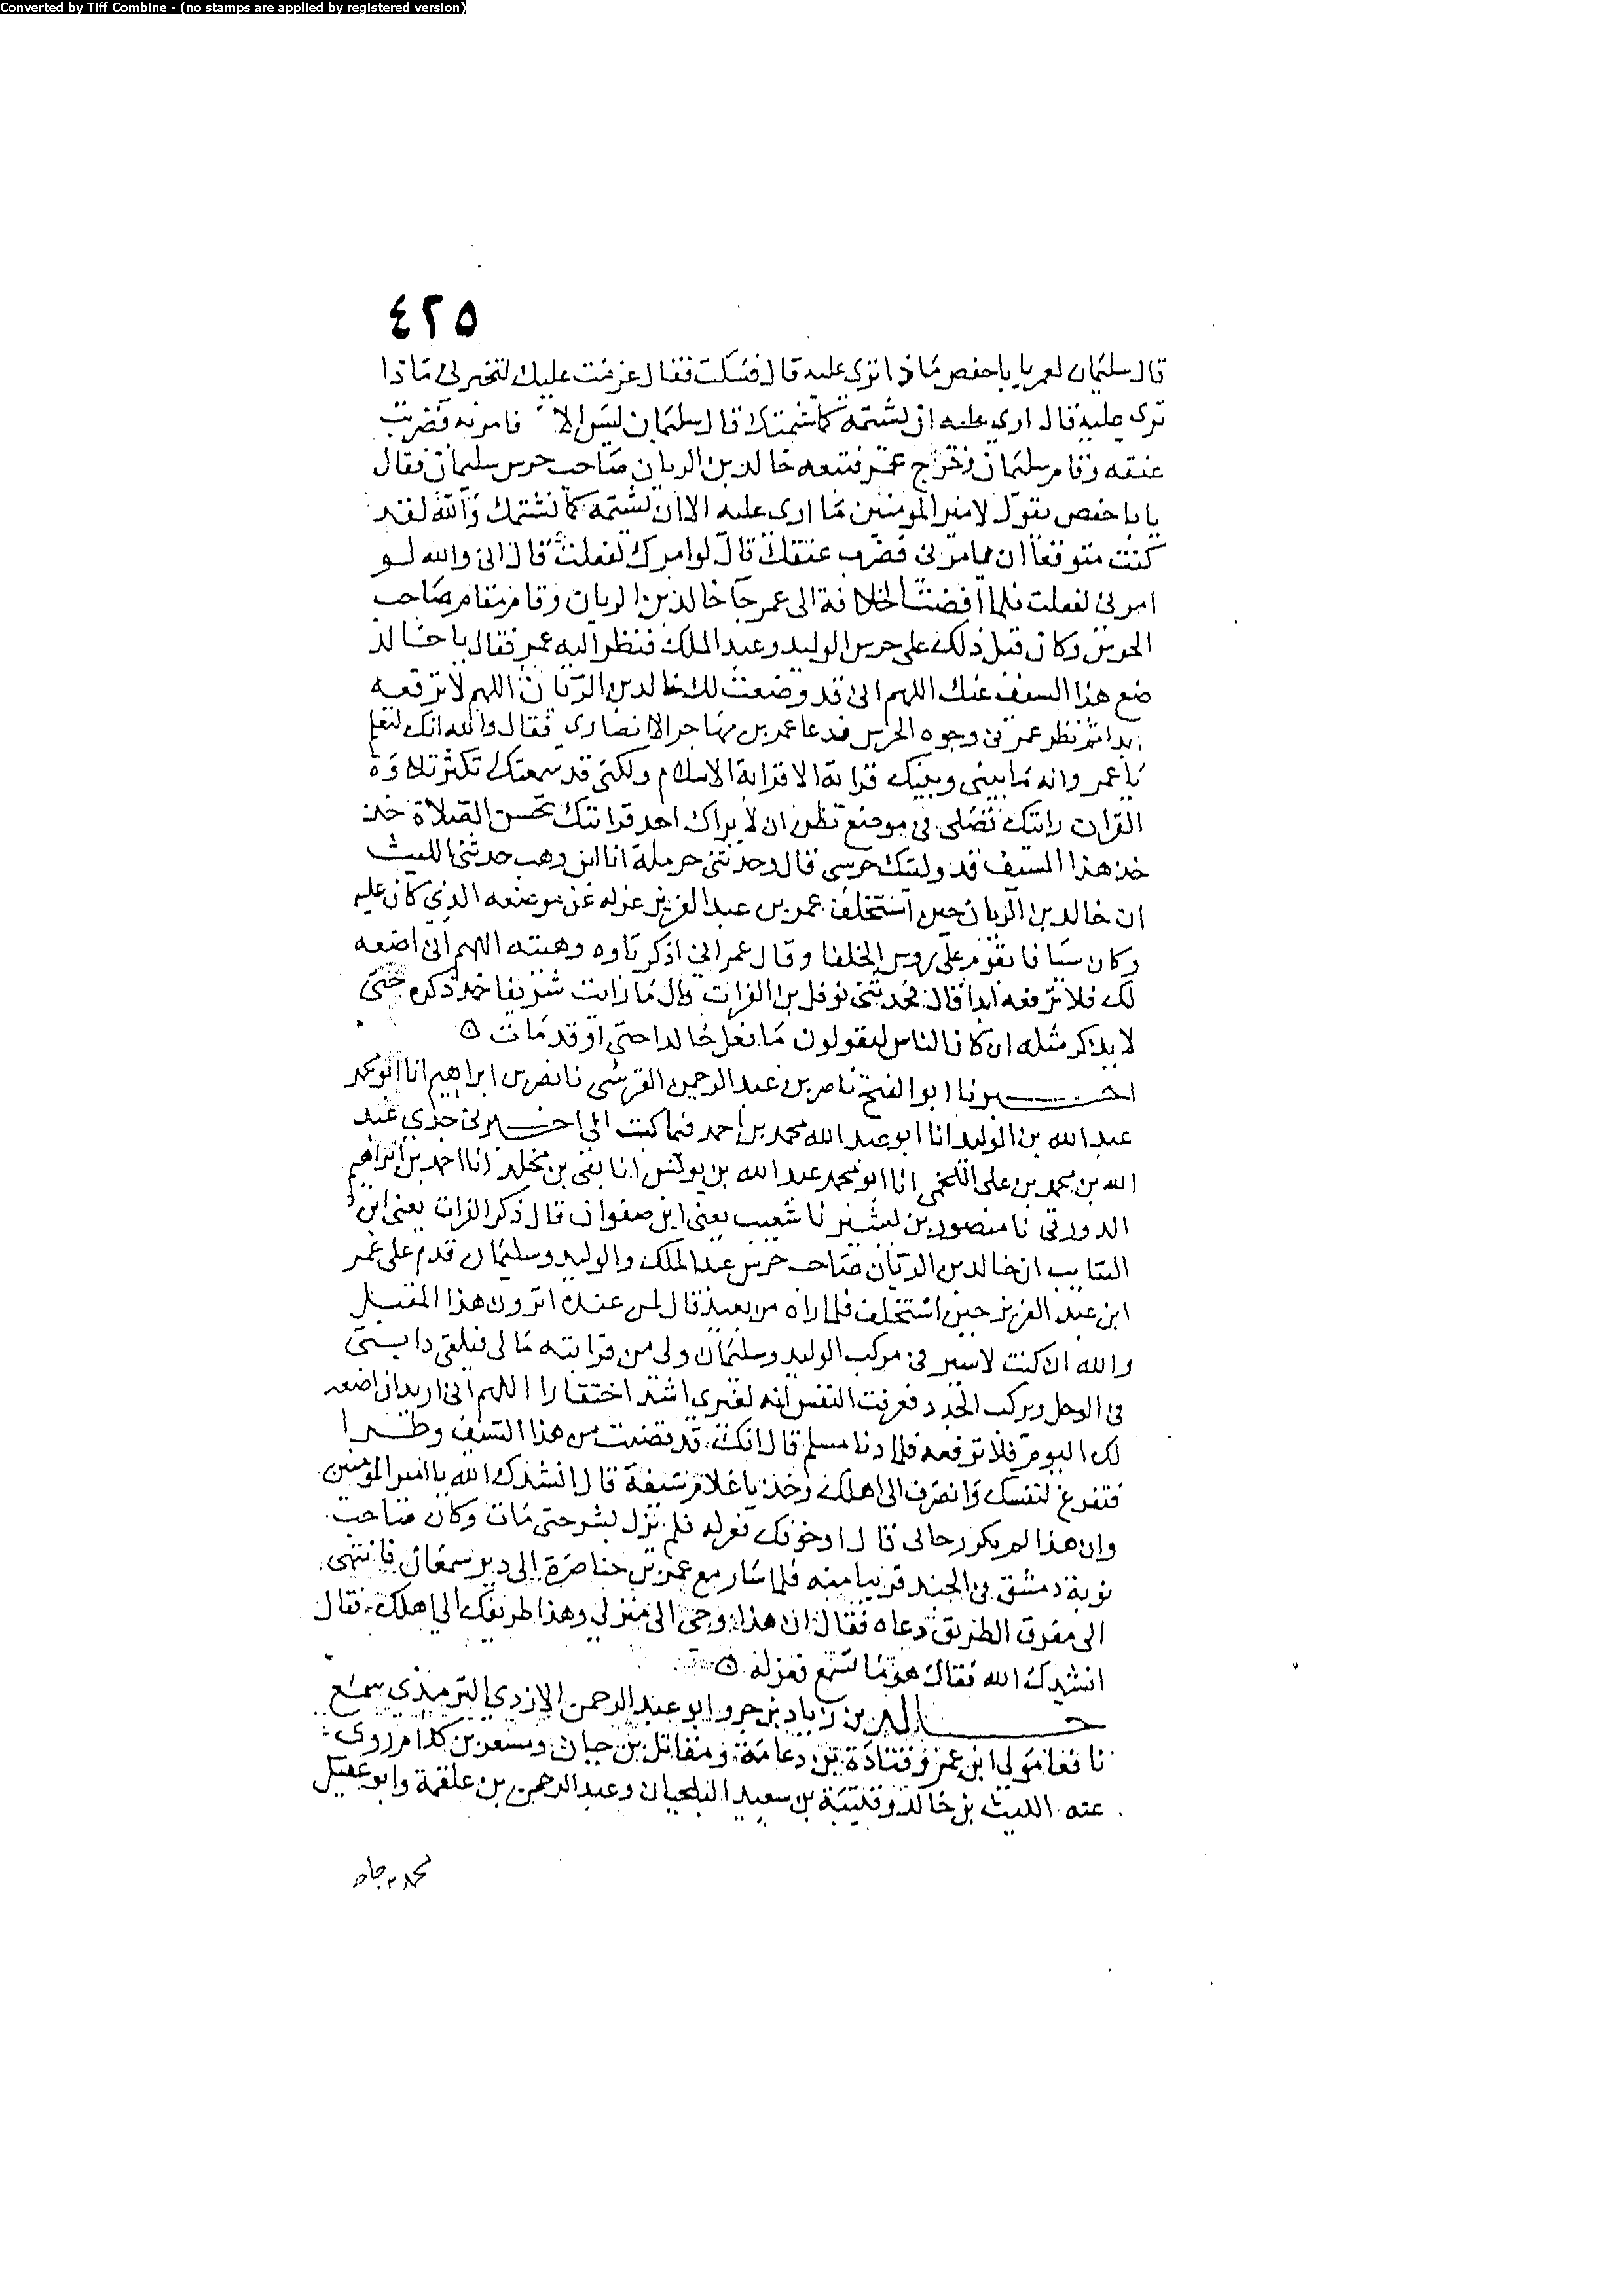 Converted by Tiff Combine - (no stamps are applied by registered version)
٤٢٥
قال سليمان لعمر يا باحفص ماذا ترى عليه قال فسكت فقال عزمت عليك لتخبرني ماذا
ترى عليه قال ارى عليه ان تشتمه كما شتمتك قال سليمان ليس الا فامر به فضربت
عنقه وقام سليمان وخرج عمر فتبعه خالد بن الريان صاحب حرس سليمان فقال
يا با حفص تقول لامير المومنين ما ارى عليه الا ان تشتمه كما شتمك والله لقد
كنت متوقعا ان يامرني فضرب عنقك قال لو امرك لفعلت قال اي والله لو
امرني لفعلت فلما افضت الخلافة الى عمر جا خالد بن الريان وقام مقام صاحب
الحرس وكان قبل ذلك على حرس الوليد وعبد الملك فنظر اليه عمر فقال يا خالد
ضع هذا السيف عنك اللهم اني قد وضعت لك خالد بن الريان اللهم لا ترفعه
ابدا ثم نظر عمر في وجوه الحرس فدعا عمر بن مهاجر الانصاري فقال والله انك لتعلم
يا عمر وانه ما بيني وبينك قرابة الا قرابة الاسلام ولكني قد سمعتك تكثر تلاوة
القران رايتك تصلي في موضع تظن ان لا يراك احد فرايتك تحسن الصلاة خذ
خذ هذا السيف قد وليتك حرسي قال وحدثني حرملة انا ابن وهب حدثني الليث
ان خالد بن الريان حين استخلف عمر بن عبد العزيز عزله عن موضعه الذي كان عليه
وكان سيافا يقوم على روس الخلفا وقال عمر اني اذكر باوه وهيته اللهم اني اضعه
لك فلا ترفعه ابدا قال فحدثني نوفل بن الفرات قال ما رايت شريفا خمد ذكره حتى
لا يذكر مثله ان كان الناس ليقولون ما فعل خالد احي او قد مات ه
اخبرنا ابو الفتح ناصر بن عبد الرحمن القرشي نا نصر بن ابراهيم انا ابو محمد
عبد الله بن الوليد انا ابو عبد الله محمد بن احمد فيما كتب الي اخبرني جدي عبد
الله بن محمد بن علي اللخمي انا ابو محمد عبد الله بن يونس انا بقي بن مخلد انا احمد بن ابراهيم
الدورقي نا منصور بن بشير نا شعيب يعني ابن صفوان قال ذكر الفرات يعني ابن
السايب ان خالد بن الريان صاحب حرس عبد الملك والوليد وسليمان قدم على عمر
ابن عبد العزيز حين استخلف فلما راه من بعيد قال لمن عنده اترون هذا المقبل
والله ان كنت لاسير في مركب الوليد وسليمان ولي من قرابته ما لي فيلقي دابتي
في الوحل ويركب الجدد فعرفت النفس انه لغيري اشد احتقارا اللهم اني اريد ان اضعه
لك اليوم فلا ترفعه فلما دنا مسلم قال انك قد قضيت من هذا السيف وطرا
فتفرغ لنفسك وانصرف الى اهلك وخذ يا غلام سيفه قال انشدك الله يا امير المومنين
وان هذا لم يكن رجاي قال او خوفك فعزله فلم نزل بشر حتى مات وكان صاحب
نوبة دمشق في الجند قريبا منه فلما سار مع عمر بن خناصرة الى دير سمعان فانتهى
الى مفرق الطريق دعاه فقال ان هذا وجي الى منزلي وهذا طريقك الى اهلك فقال
انشدك الله فقال هو ما تسمع فعزله ه
خالد بن زياد بن جرو ابو عبد الرحمن الازدي الترمذي سمع
نافعا مولى ابن عمر وقتادة بن دعامة ومقاتل بن حيان ومسعر بن كدام روى
عنه الليث بن خالد وقتيبة بن سعيد البلخيان وعبد الرحمن بن علقمة وابو عقيل